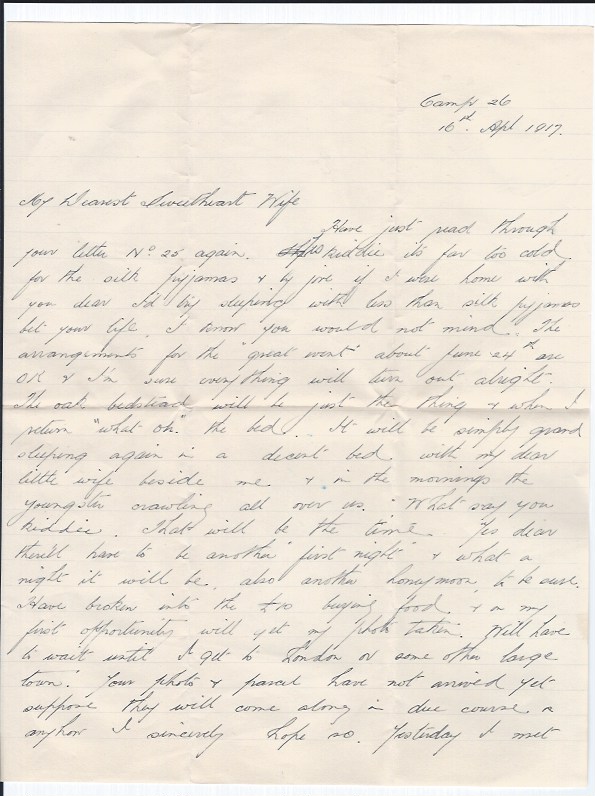 Camp 26
16th. Apl 1917.
My Dearest Sweetheart Wife
Have just read through
your letter No 25 again. Yes kiddie its far too cold
for the silk pyjamas & by jove if I were home with
you dear I'd try sleeping with less than silk pyjamas
bet your life. I know you would not mind. The
arrangements for the "great event" about June 24th are
OK & I'm sure everything will turn out alright.
The oak bedstead will be just the thing & when I
return "what oh" the bed... It will be simply grand
sleeping again in a decent bed with my dear
little wife beside me & in the mornings the
youngster crawling all over us. What say you
kiddie. That will be the time. Yes dear
there'll have to be another "first night" & what a
night it will be. also another honeymoon to be sure.
Have broken into the £10 buying food & on my
first opportunity will get my photo taken. Will have
to wait until I get to London or some other large
town. Your photo & parcel have not arrived yet
suppose they will come along in due course
anyhow I sincerely hope so. Yesterday I met